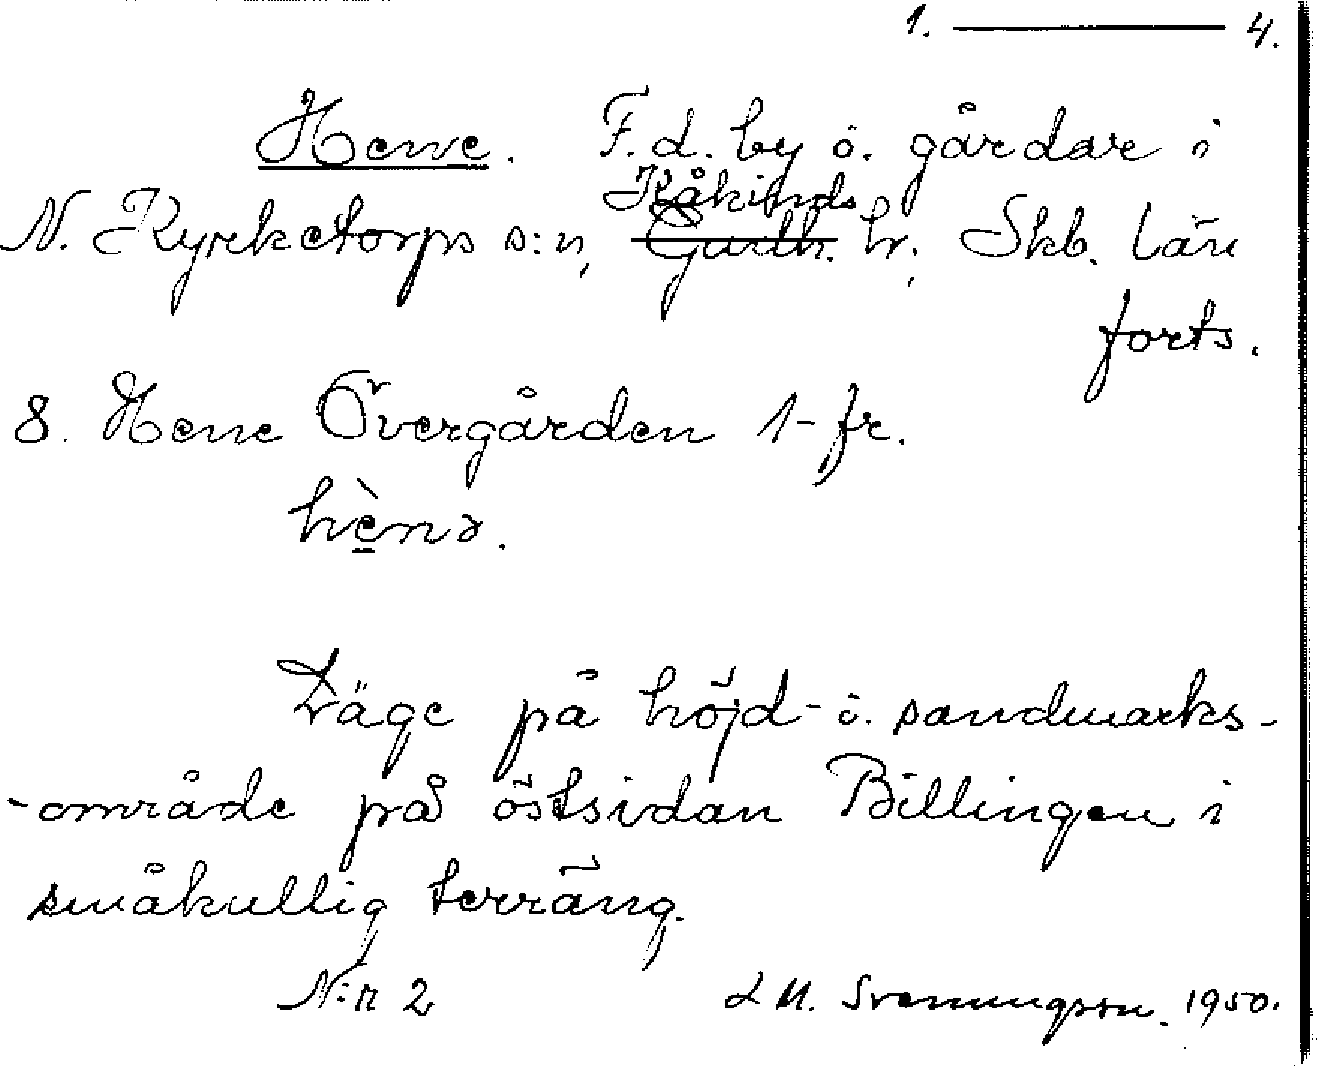 1. ——— 4.
Hene. F. d. by o. gårdar i
Kåkinds
N. Kyrketorps s:n, Gudh. hr, Skb. län
forts.
8. Hene Övergården 1-fr.
hènə.
Läge på höjd- o. sandmarks-
-område på östsidan Billingen i
småkullig terräng.
N:r 2 L M. Svenungsson. 1950.